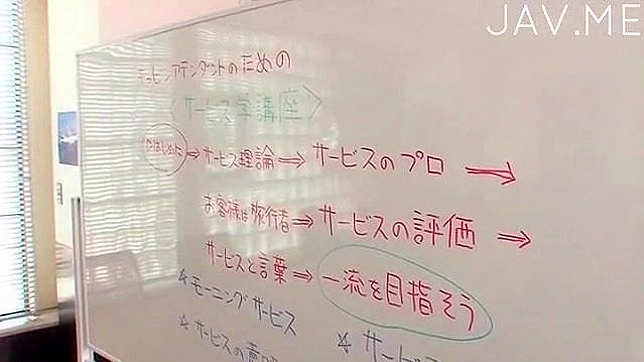 JAV.ME
キャビンアテンダントのための
<サービス学講座>
はじめに→サービス理論⇒サービスのプロ⇒
お客様は旅行者⇒サービスの評価⇒
サービスと言葉⇒一流を目指そう
*モーニングサービス
*サービスの *サービ